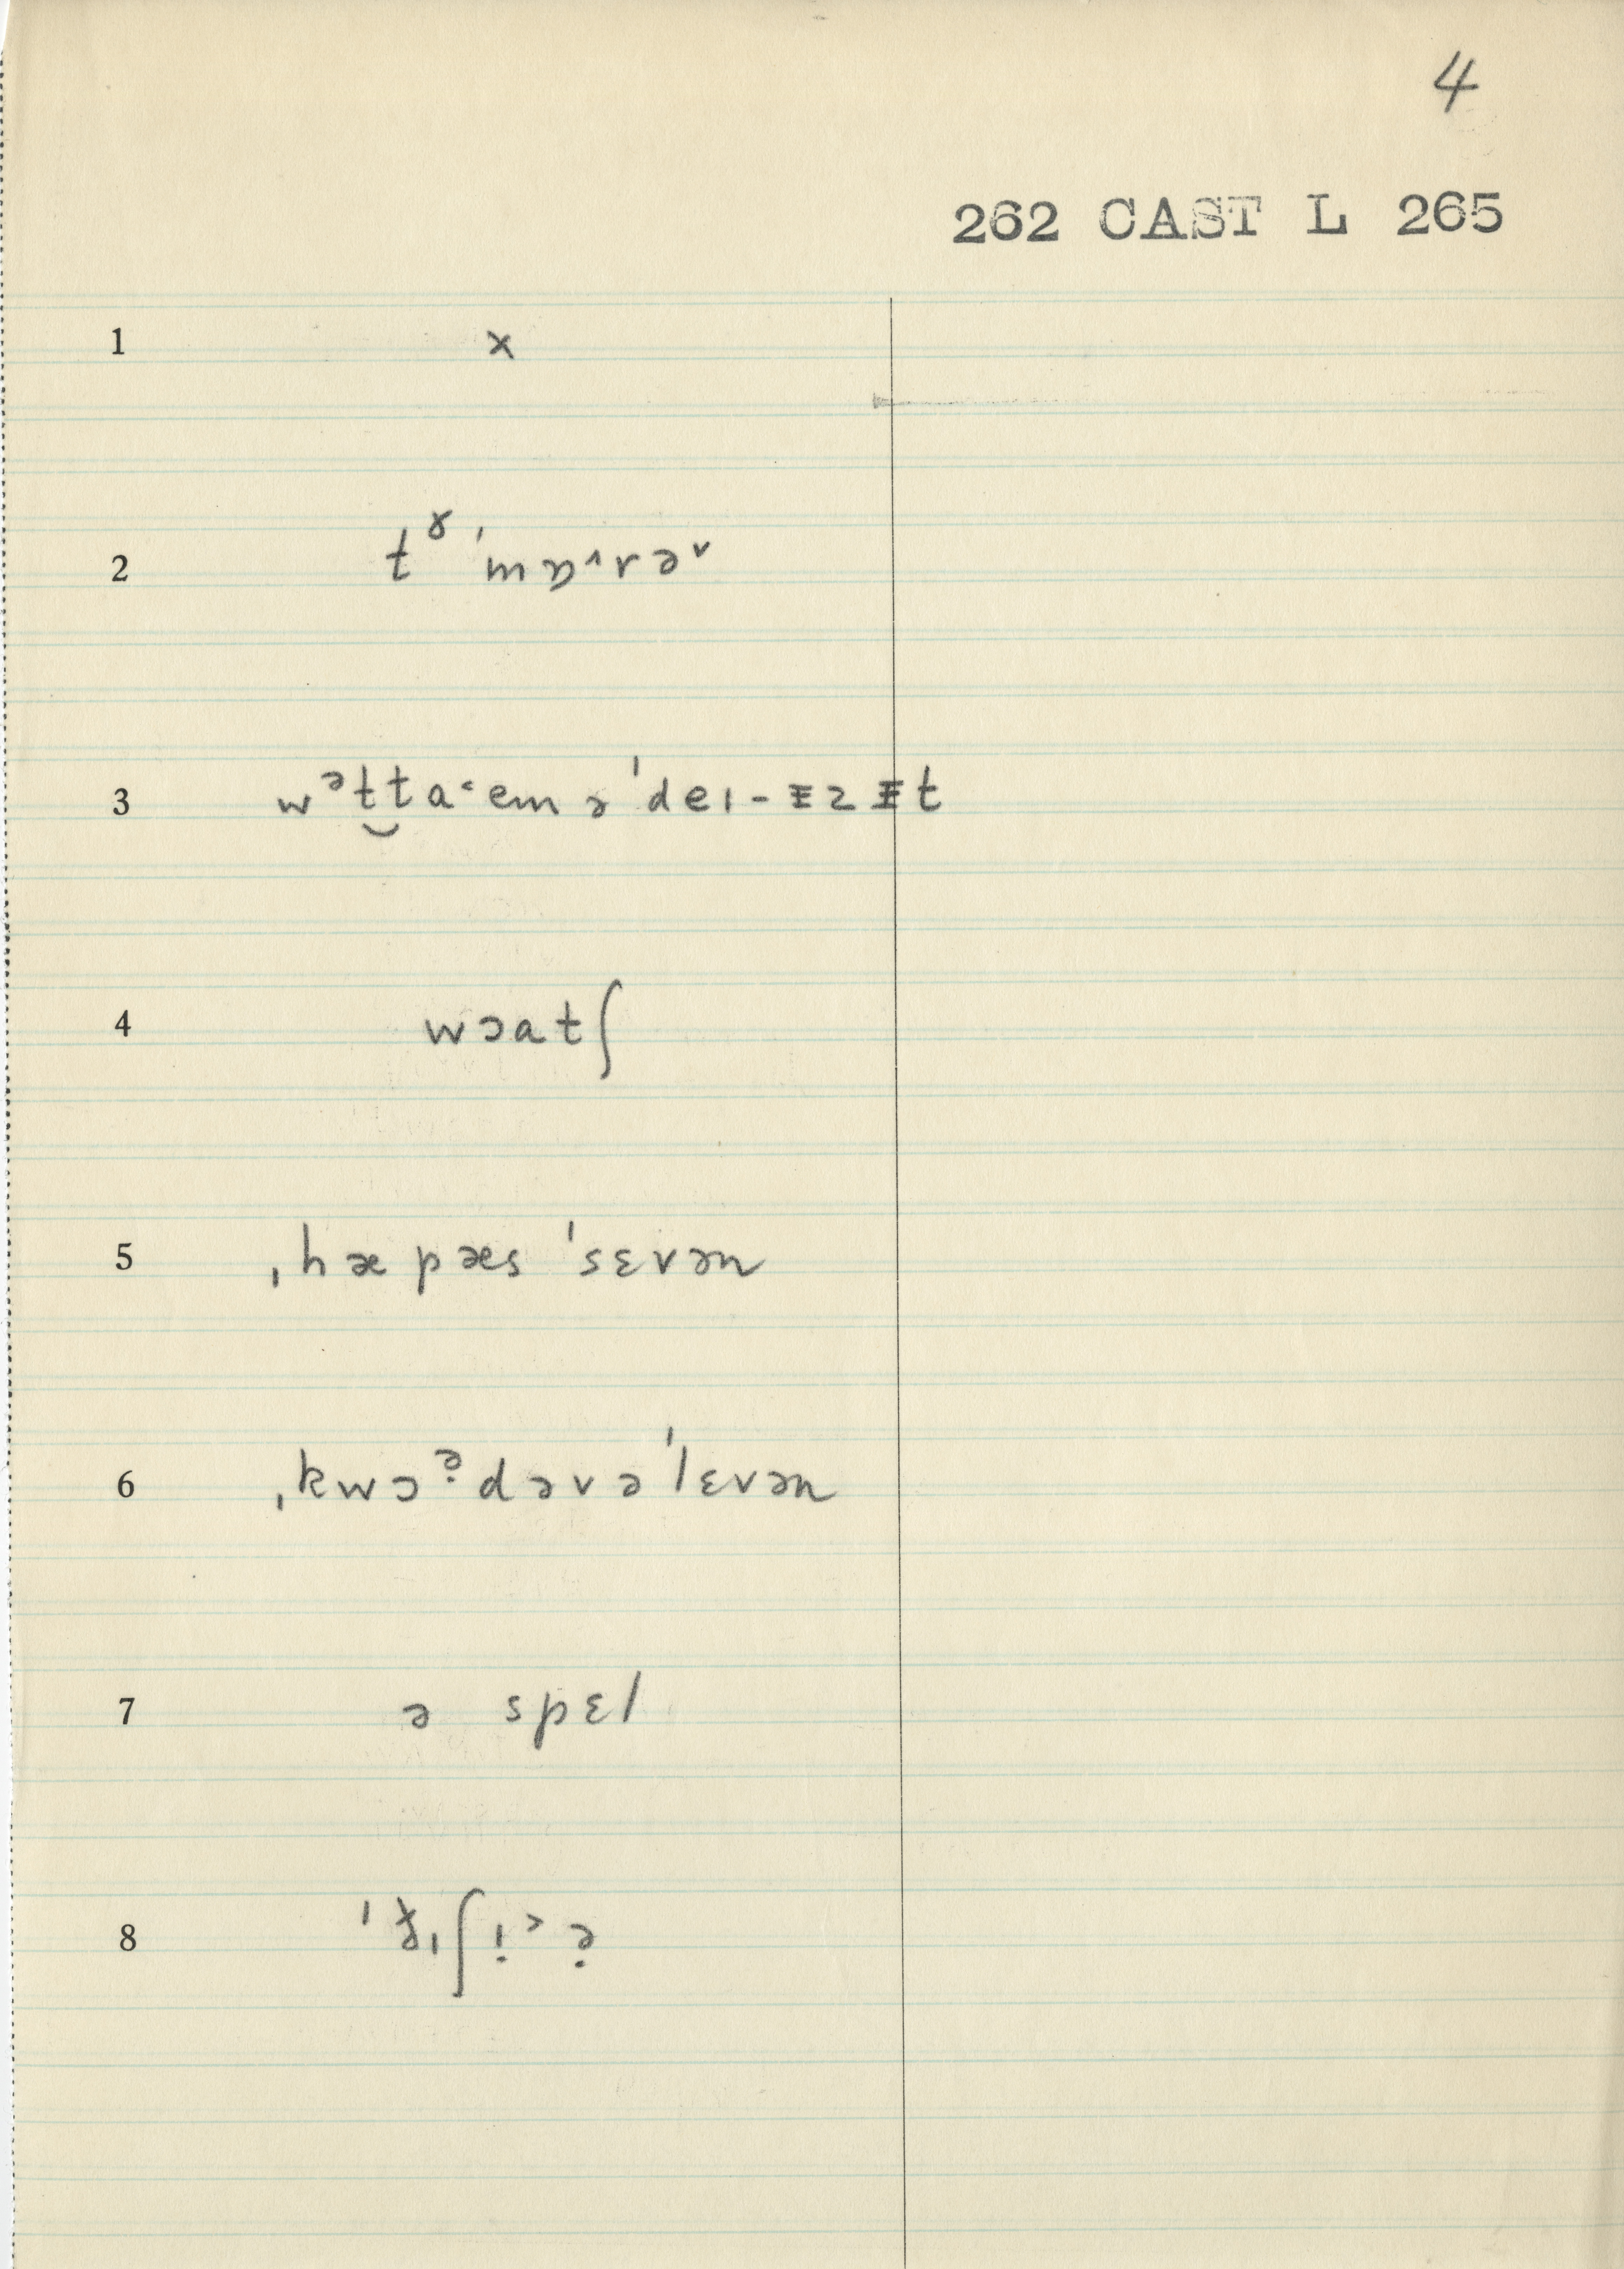 4
262 CAST L 265
1 x
2 tˠ ˈmɒ˄rəᵛ
3 wᵊt‿ta˂em ə ˈdeɪ-ɪzɪt
4 wɔatʃ
5 ˌhæ pæs ˈsɛvən
6 ˌkwɔᵊ̣dəvəˈlɛvən
7 ə spɛl
8